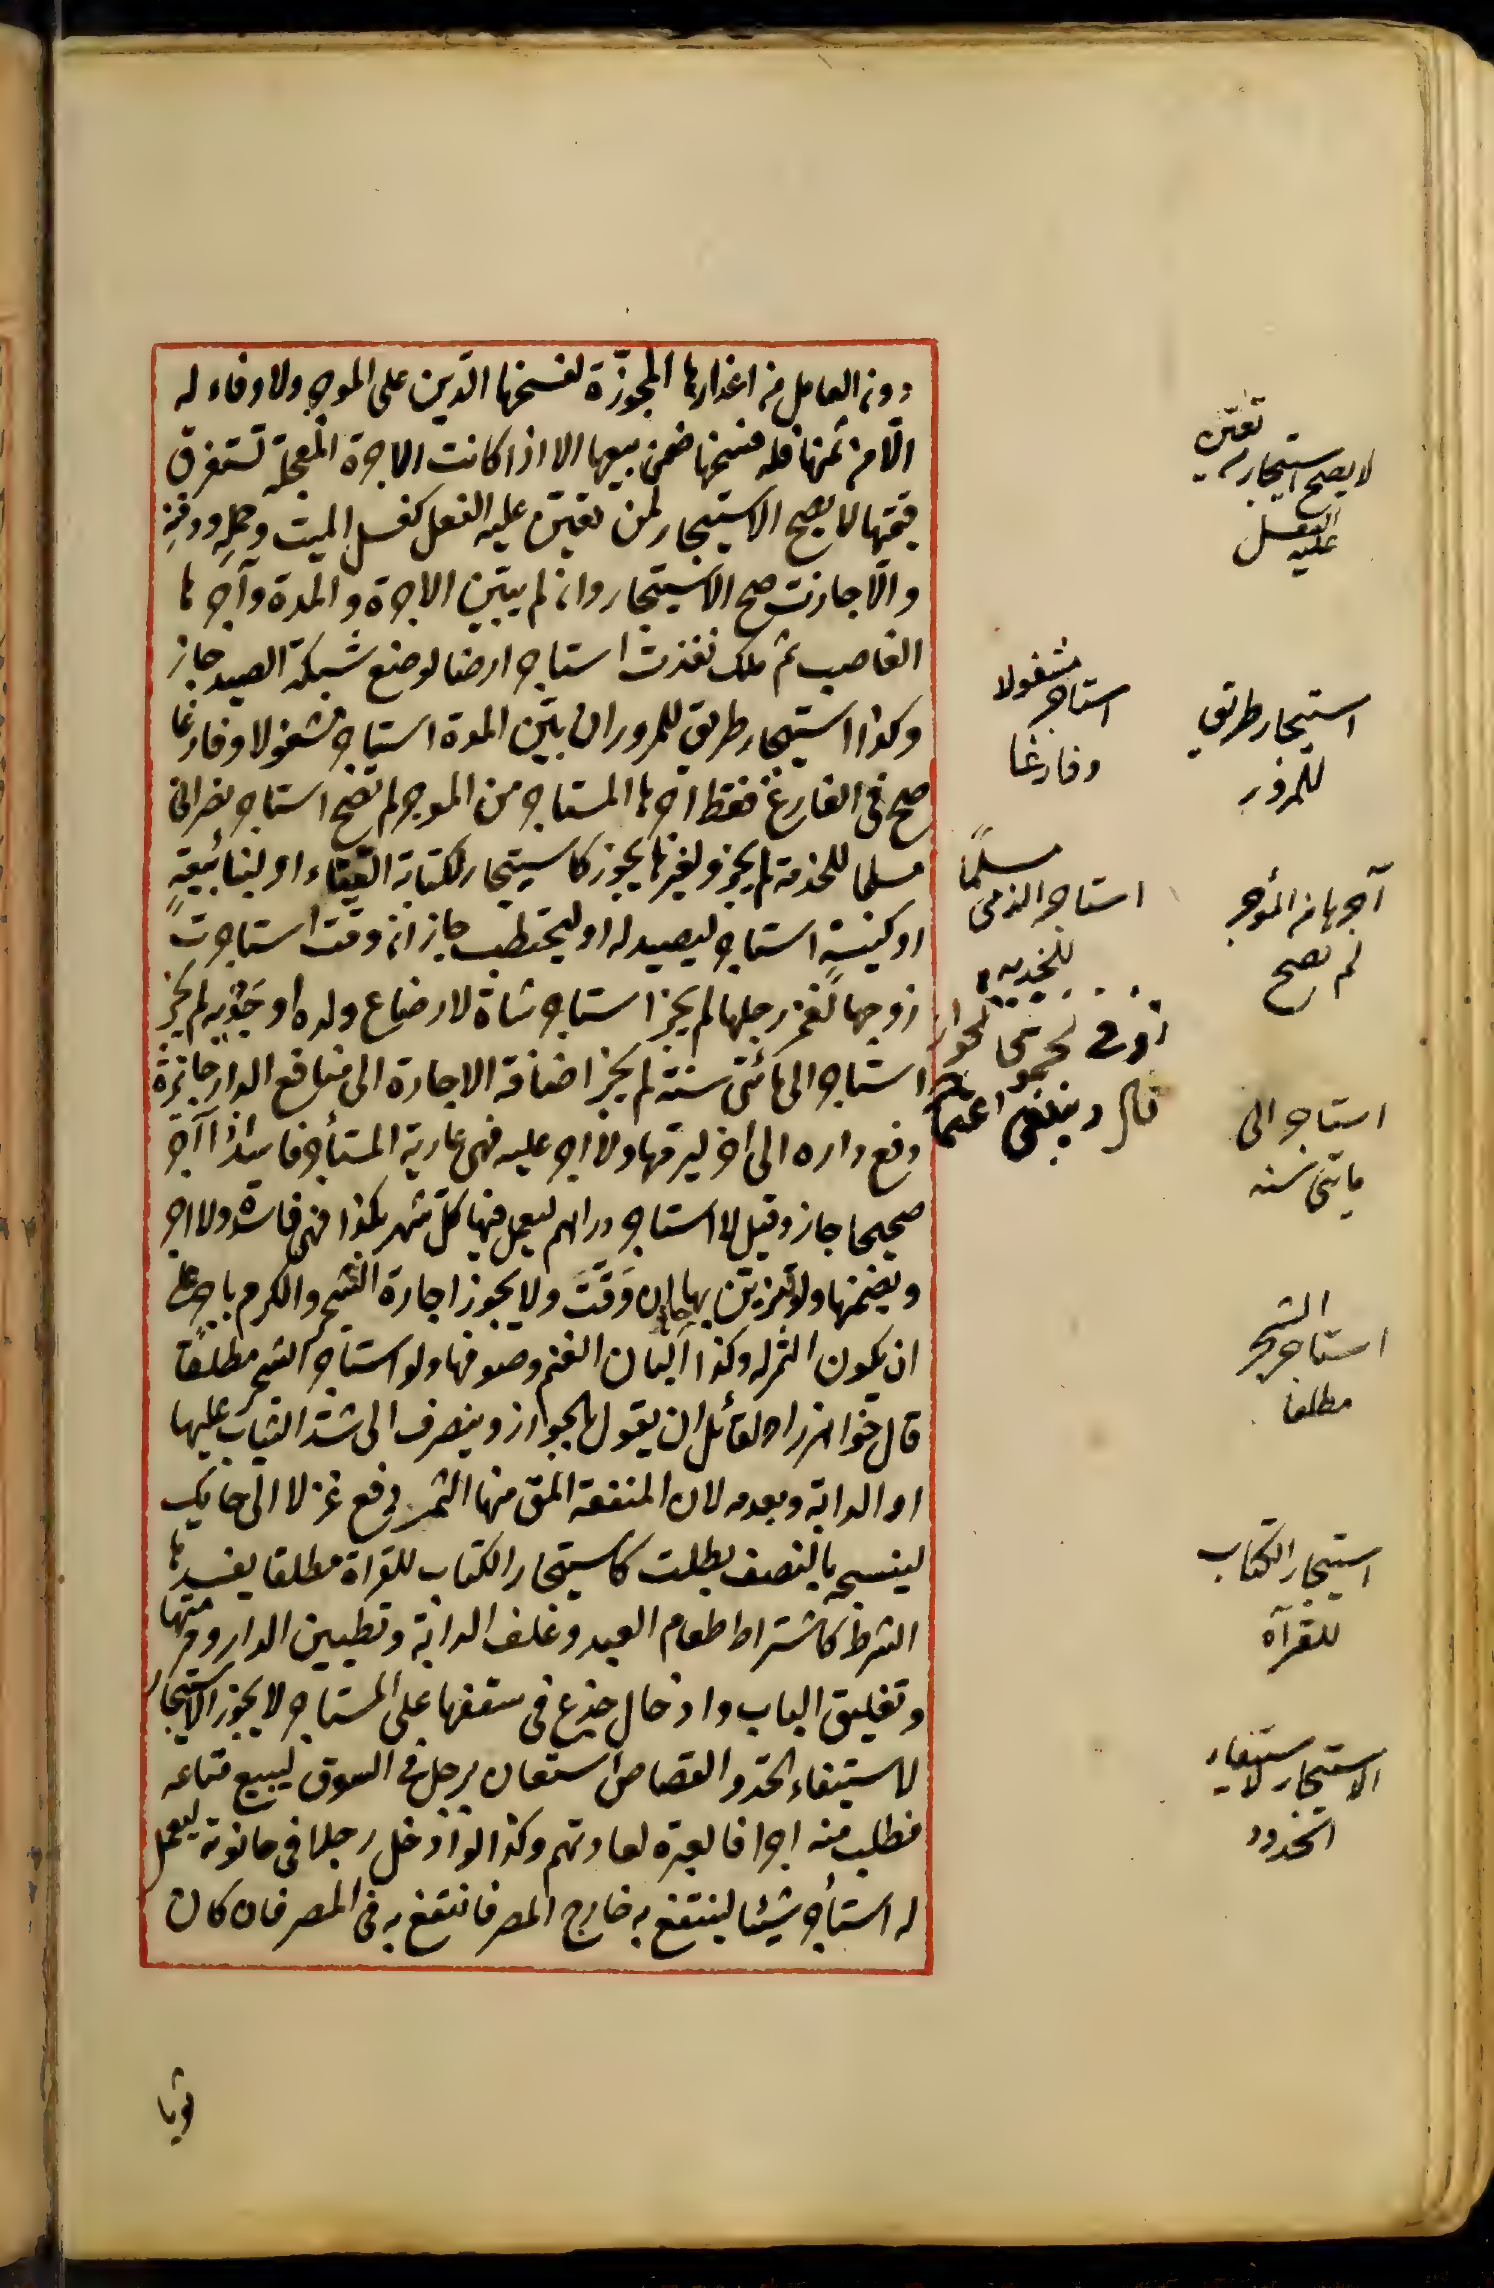 دون العامل من اعذارها المجوزة لفسخها الدين على الموجر ولا وفاء له
الا من ثمنها فله فسخها ضمن بيعها الا اذا كانت الاجرة المعجلة تستغرق
قيمتها لا يصح الاستيجار لمن تعين عليه الفعل كغسل الميت وحمله ودفنه
والا جازت صح الاستيجار وان لم يبين الاجرة والمدة وآجرها
الغاصب ثم ملك نفذت استاجر ارضا لوضع شبكة الصيد جاز
وكذا استيجار طريق للمرور ان بين المدة استاجر مشغولا وفارغا
صح فى الفارغ فقط آجرها المستاجر من الموجر لم تصح استاجر نصرانى
مسلما للخدمة لم يجز ولغيرها يجوز كاستيجار لكتابة الغناء او لبناء بيعة
او كنيسة استاجر ليصيد له او ليحتطب جاز ان وقت استاجرت
زوجها لغمز رجلها لم يجز استاجر شاة لارضاع ولده او جديه لم يجز
استاجر الى مائتى سنة لم يجز اضافة الاجارة الى منافع الدار جائزة
دفع داره الى آخر ليرمها ولا اجر عليه فهى عارية المستأجر فاسدا اذا آجر
صحيحا جاز وقيل لا استاجر دراهم ليعمل فيها كل شهر بكذا فهى فاسدة ولا اجر
ويضمنها ولو ليزين بها جاز ان وقت ولا يجوز اجارة الشجر والكرم باجر على
ان يكون الثمر له وكذا البان الغنم وصوفها ولو استاجر الشجر مطلقا
قال خواهرزاده لقائل ان يقول بالجواز وينصرف الى شد الثياب عليها
او الدابة وبعدمه لان المنفعة المق منها الثمر دفع غزلا الى حايك
لينسجه بالنصف بطلت كاستيجار الكتاب للقراة مطلقا يفسدها
الشرط كاشتراط طعام العبد وعلف الدابة وتطيين الدار ومرمتها
وتغليق الباب وادخال جذع فى سقفها على المستاجر لا يجوز الاستيجار
لاستيفاء الحد والقصاص استعان برجل فى السوق ليبيع متاعه
فطلب منه اجرا فالعبرة لعادتهم وكذا لو ادخل رجلا فى حانوته ليعمل
له استأجر شيئا لينتفع به خارج المصر فانتفع به فى المصر فان كان
ثوبا
لا يصح استيجار من تعين
عليه الفعل
استيجار طريق
للمرور
استاجر مشغولا
وفارغا
آجرها من المؤجر
لم يصح
استاجر الذمى مسلما
للخدمة
استاجر الى
مائتى سنه
استاجر الشجر
مطلقا
استيجار الكتاب
للقرآة
الاستيجار لاستيفاء
الحدود